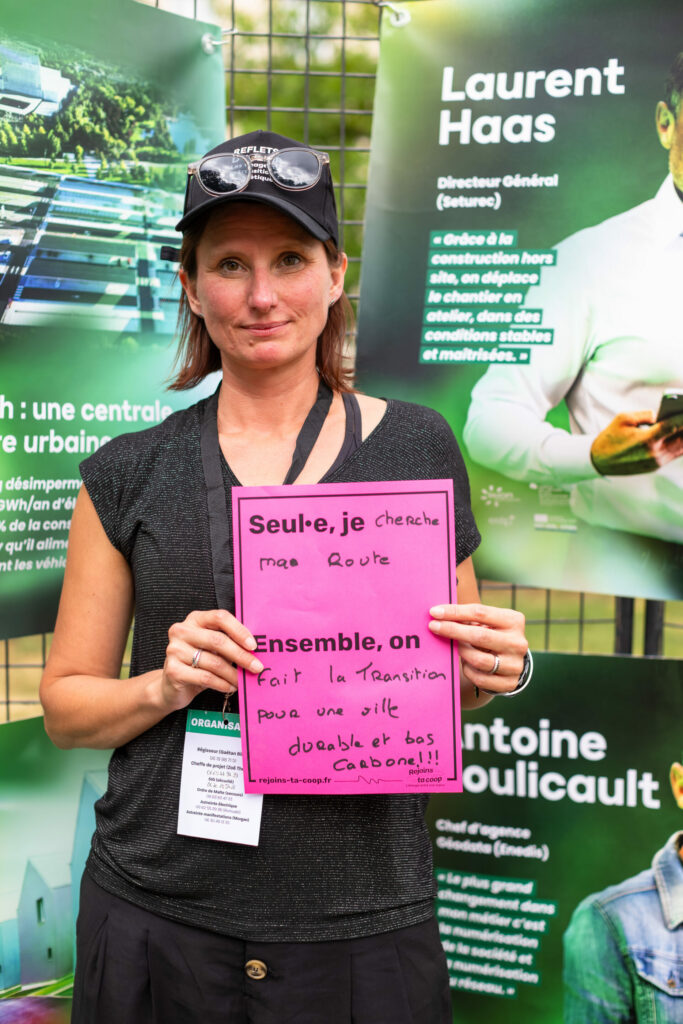 REFLETS
Laurent
Haas
Directeur Général
(Seturec)
« Grâce à la
construction hors
site, on déplace
le chantier en
atelier, dans des
conditions stables
et maîtrisées. »
h : une centrale
re urbaine
désimperm
GWh/an d'é
% de la cons
y qu'il alime
nt les véhic
Seul•e, je cherche
maa Route
Ensemble, on
fait la Transition
pour une ville
durable et bas
Carbone!!!
rejoins-ta-coop.fr
Rejoins
ta coop
ORGANISA
Régisseur (Gaëtan
Cheffe de projet (Zoé
Ordre de Malte (secours)
Astreinte électrique
Astreinte manifestations (Morgan)
ntoine
oulicault
Chef d'agence
Géodata (Enedis)
« Le plus grand
changement dans
mon métier c'est
la numérisation
de la société et
la numérisation
du réseau. »